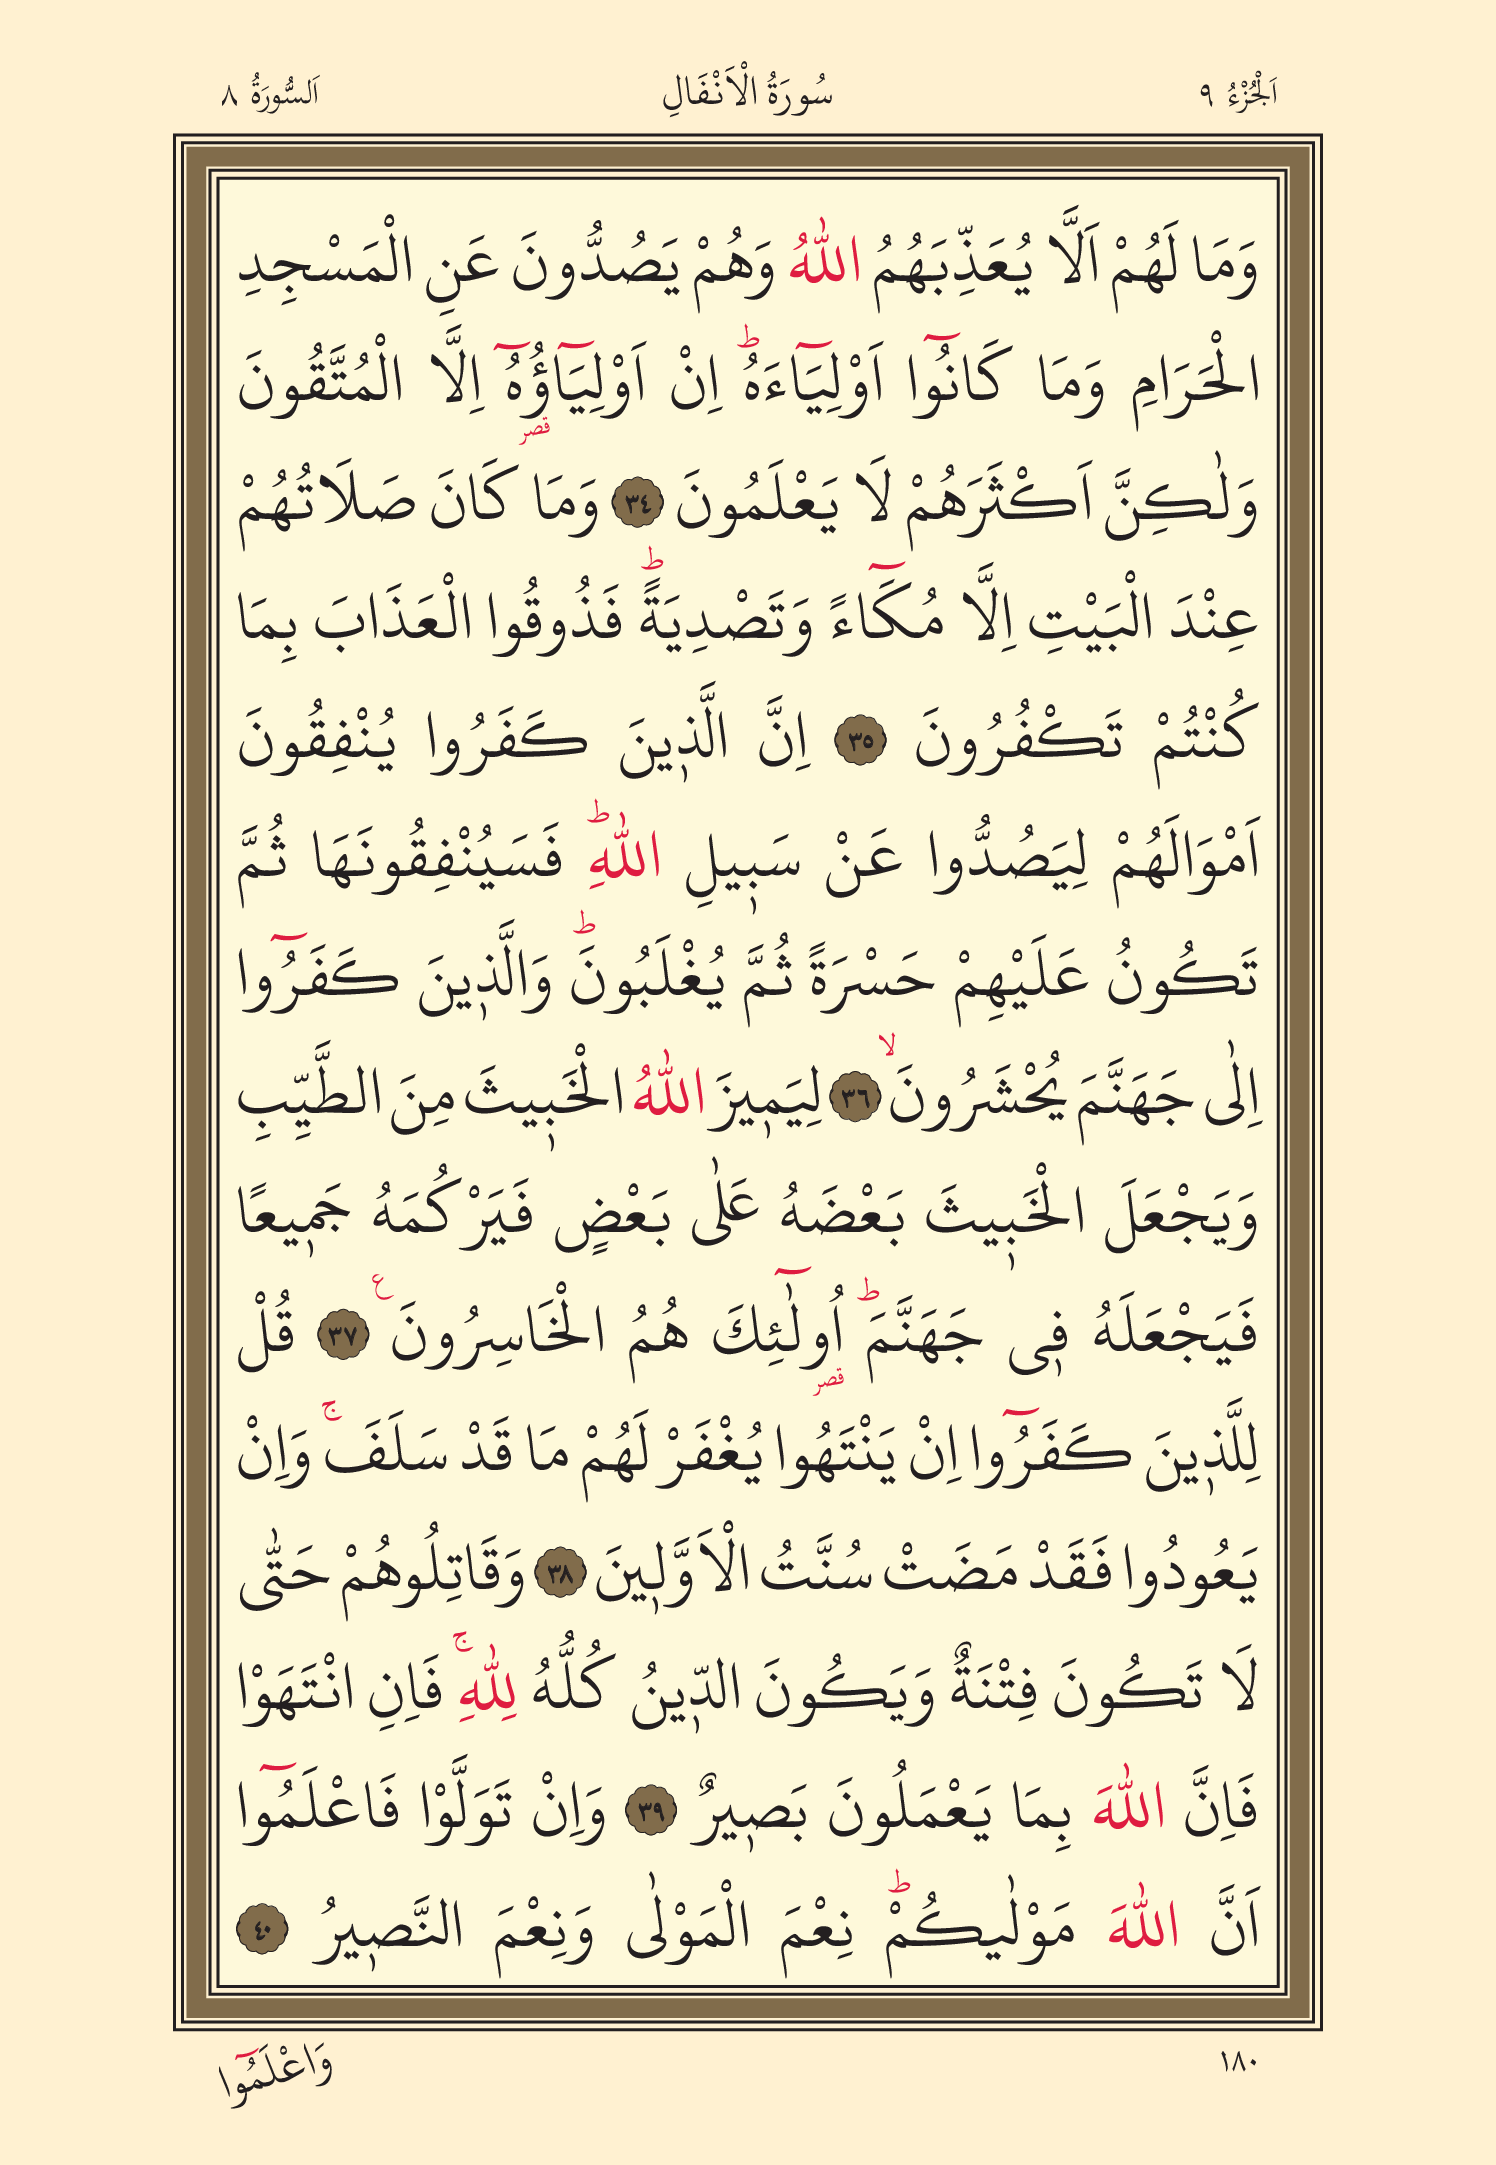 اَلْجُزْءُ ٩ سُورَةُ الْاَنْفَالِ اَلسُّورَةُ ٨
وَمَا لَهُمْ اَلَّا يُعَذِّبَهُمُ اللّٰهُ وَهُمْ يَصُدُّونَ عَنِ الْمَسْجِدِ
الْحَرَامِ وَمَا كَانُٓوا اَوْلِيَٓاءَهُۜ اِنْ اَوْلِيَٓاؤُ۬هُٓ اِلَّا الْمُتَّقُونَ
قصر
وَلٰكِنَّ اَكْثَرَهُمْ لَا يَعْلَمُونَ ٣٤ وَمَا كَانَ صَلَاتُهُمْ
عِنْدَ الْبَيْتِ اِلَّا مُكَٓاءً وَتَصْدِيَةًۜ فَذُوقُوا الْعَذَابَ بِمَا
كُنْتُمْ تَكْفُرُونَ ٣٥ اِنَّ الَّذ۪ينَ كَفَرُوا يُنْفِقُونَ
اَمْوَالَهُمْ لِيَصُدُّوا عَنْ سَب۪يلِ اللّٰهِۜ فَسَيُنْفِقُونَهَا ثُمَّ
تَكُونُ عَلَيْهِمْ حَسْرَةً ثُمَّ يُغْلَبُونَۜ وَالَّذ۪ينَ كَفَرُٓوا
اِلٰى جَهَنَّمَ يُحْشَرُونَۙ ٣٦ لِيَم۪يزَ اللّٰهُ الْخَب۪يثَ مِنَ الطَّيِّبِ
وَيَجْعَلَ الْخَب۪يثَ بَعْضَهُ عَلٰى بَعْضٍ فَيَرْكُمَهُ جَم۪يعًا
فَيَجْعَلَهُ ف۪ي جَهَنَّمَۜ اُو۬لٰٓئِكَ هُمُ الْخَاسِرُونَ ع ٣٧ قُلْ
قصر
لِلَّذ۪ينَ كَفَرُٓوا اِنْ يَنْتَهُوا يُغْفَرْ لَهُمْ مَا قَدْ سَلَفَۚ وَاِنْ
يَعُودُوا فَقَدْ مَضَتْ سُنَّتُ الْاَوَّل۪ينَ ٣٨ وَقَاتِلُوهُمْ حَتّٰى
لَا تَكُونَ فِتْنَةٌ وَيَكُونَ الدّ۪ينُ كُلُّهُ لِلّٰهِۚ فَاِنِ انْتَهَوْا
فَاِنَّ اللّٰهَ بِمَا يَعْمَلُونَ بَص۪يرٌ ٣٩ وَاِنْ تَوَلَّوْا فَاعْلَمُٓوا
اَنَّ اللّٰهَ مَوْلٰيكُمْۜ نِعْمَ الْمَوْلٰى وَنِعْمَ النَّص۪يرُ ٤٠
١٨٠ وَاعْلَمُٓوا